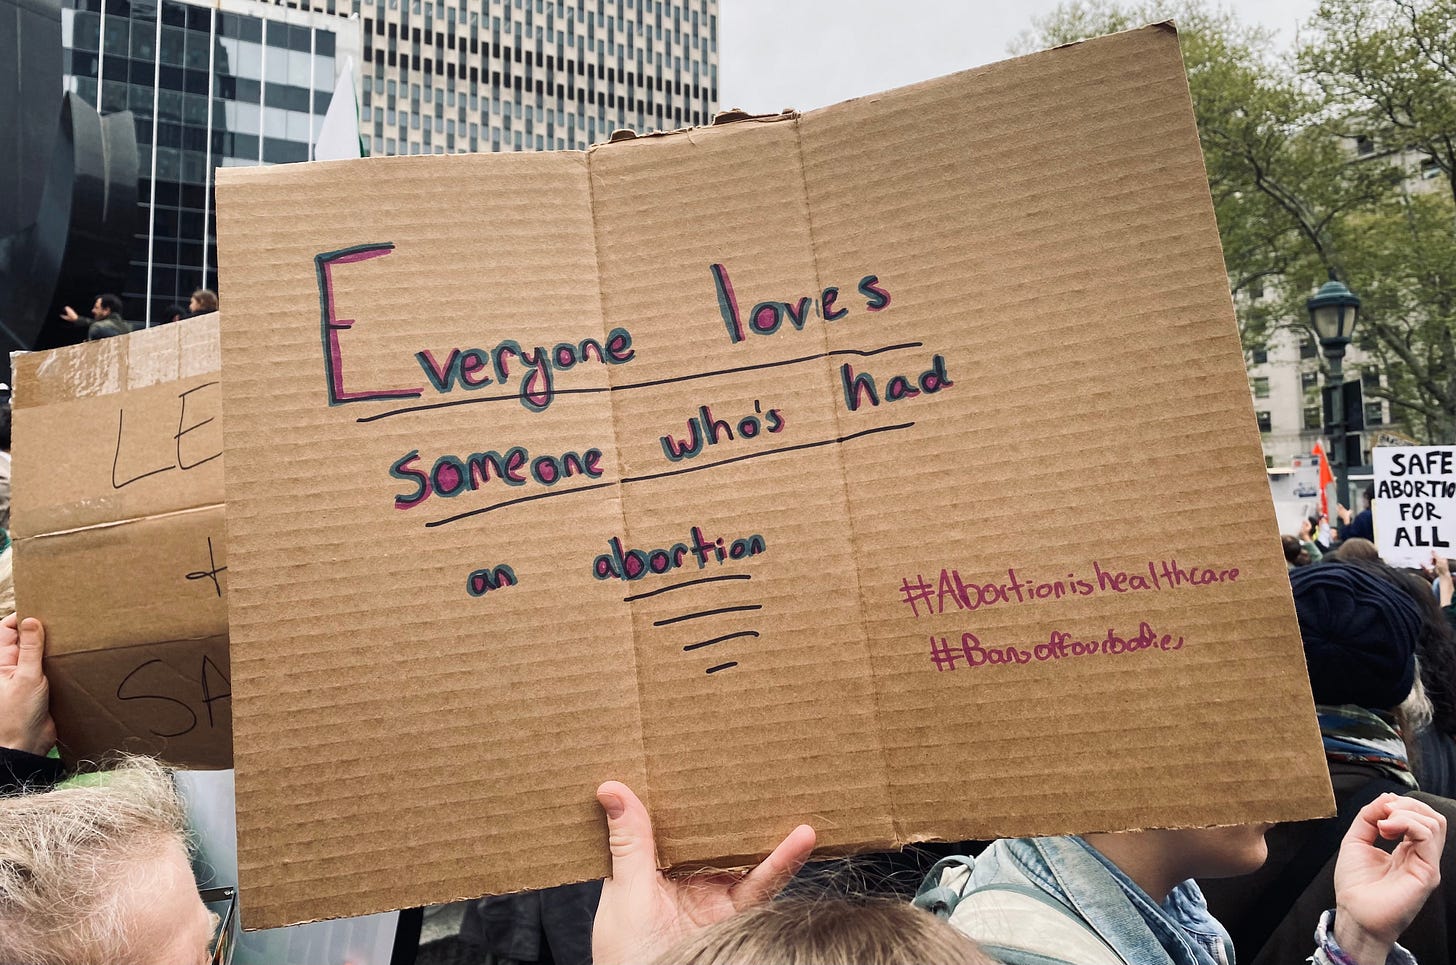 Everyone loves
someone who's had
an abortion
#Abortionishealthcare
#Bansoffourbodies
LE
SA
SAFE
ABORTIO
FOR
ALL